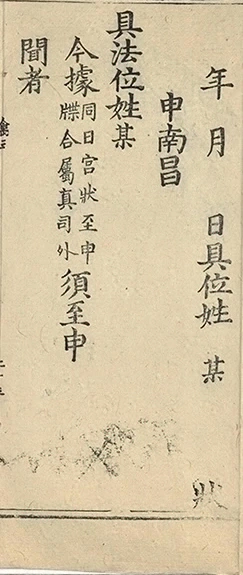 年 月 日具位姓 某 狀
申南昌
具法位姓某
今據同日宮狀至申牒合屬真司外須至申
聞者